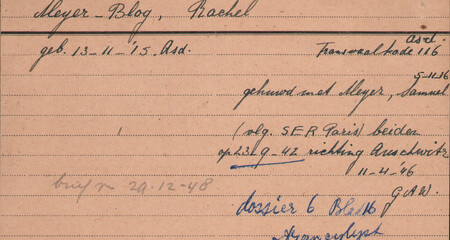 Meyer-Blog, Rachel
geb. 13-11-'15. Asd.
Asd.
Transvaalkade 116
5-11-16
gehuwd met Meyer, Samuel
(vlg. SER Paris) beiden
op 23-9-42 richting Auschwitz
11-4-'46
G.A.W.
brief v 29-12-48
dossier 6 Blad 16